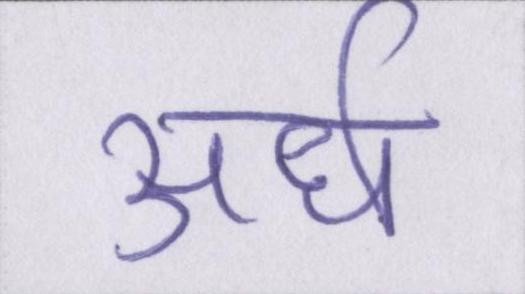 अर्ध